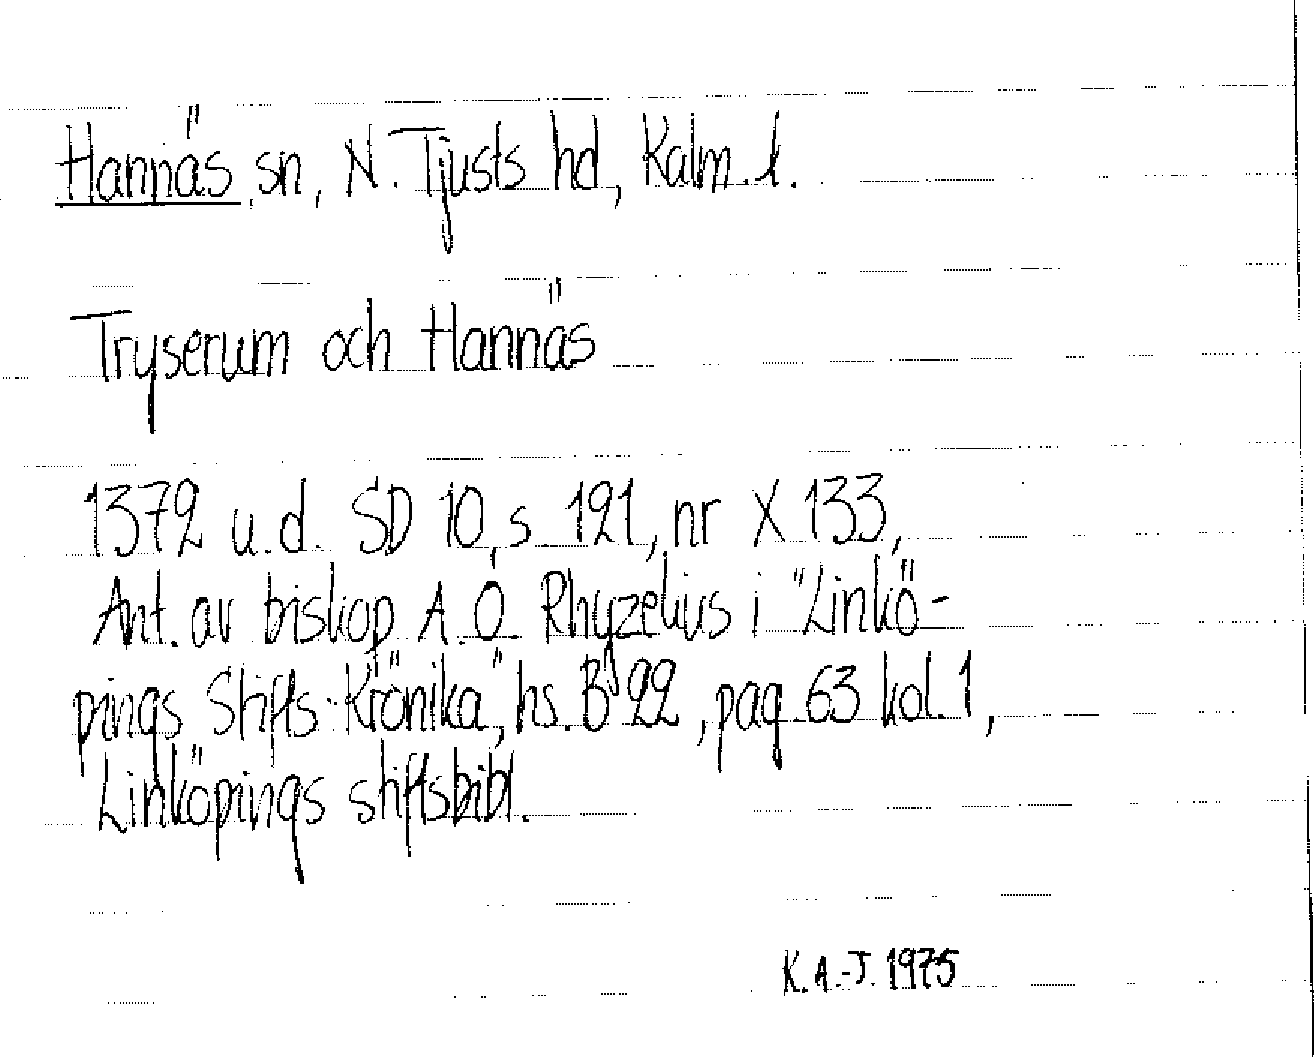 Hannäs sn, N. Tjusts hd, Kalm. l.
Tryserum och Hannäs
1372 u.d. SD 10, s 121, nr X 133,
Ant. av biskop A. O. Rhyzelius i "Linkö-
pings Stifts-Krönika", hs. B 22, pag 63 kol. 1,
Linköpings stiftsbibl.
K. A.-J. 1975